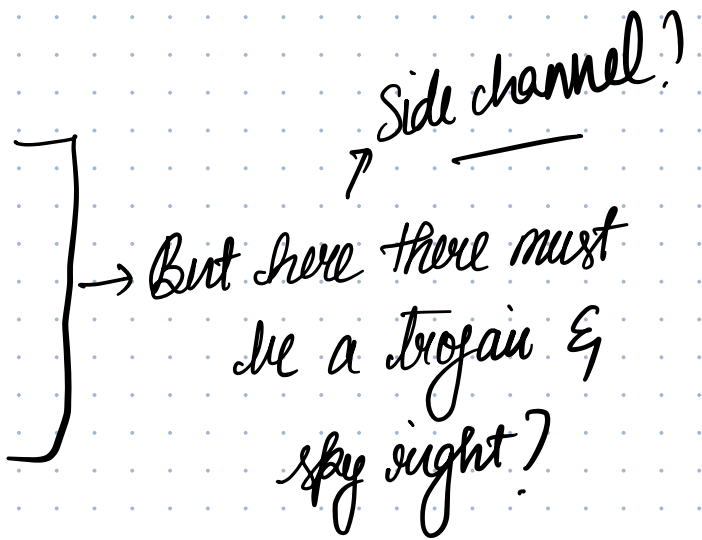 Side channel?
But here there must
be a trojan &
spy right?